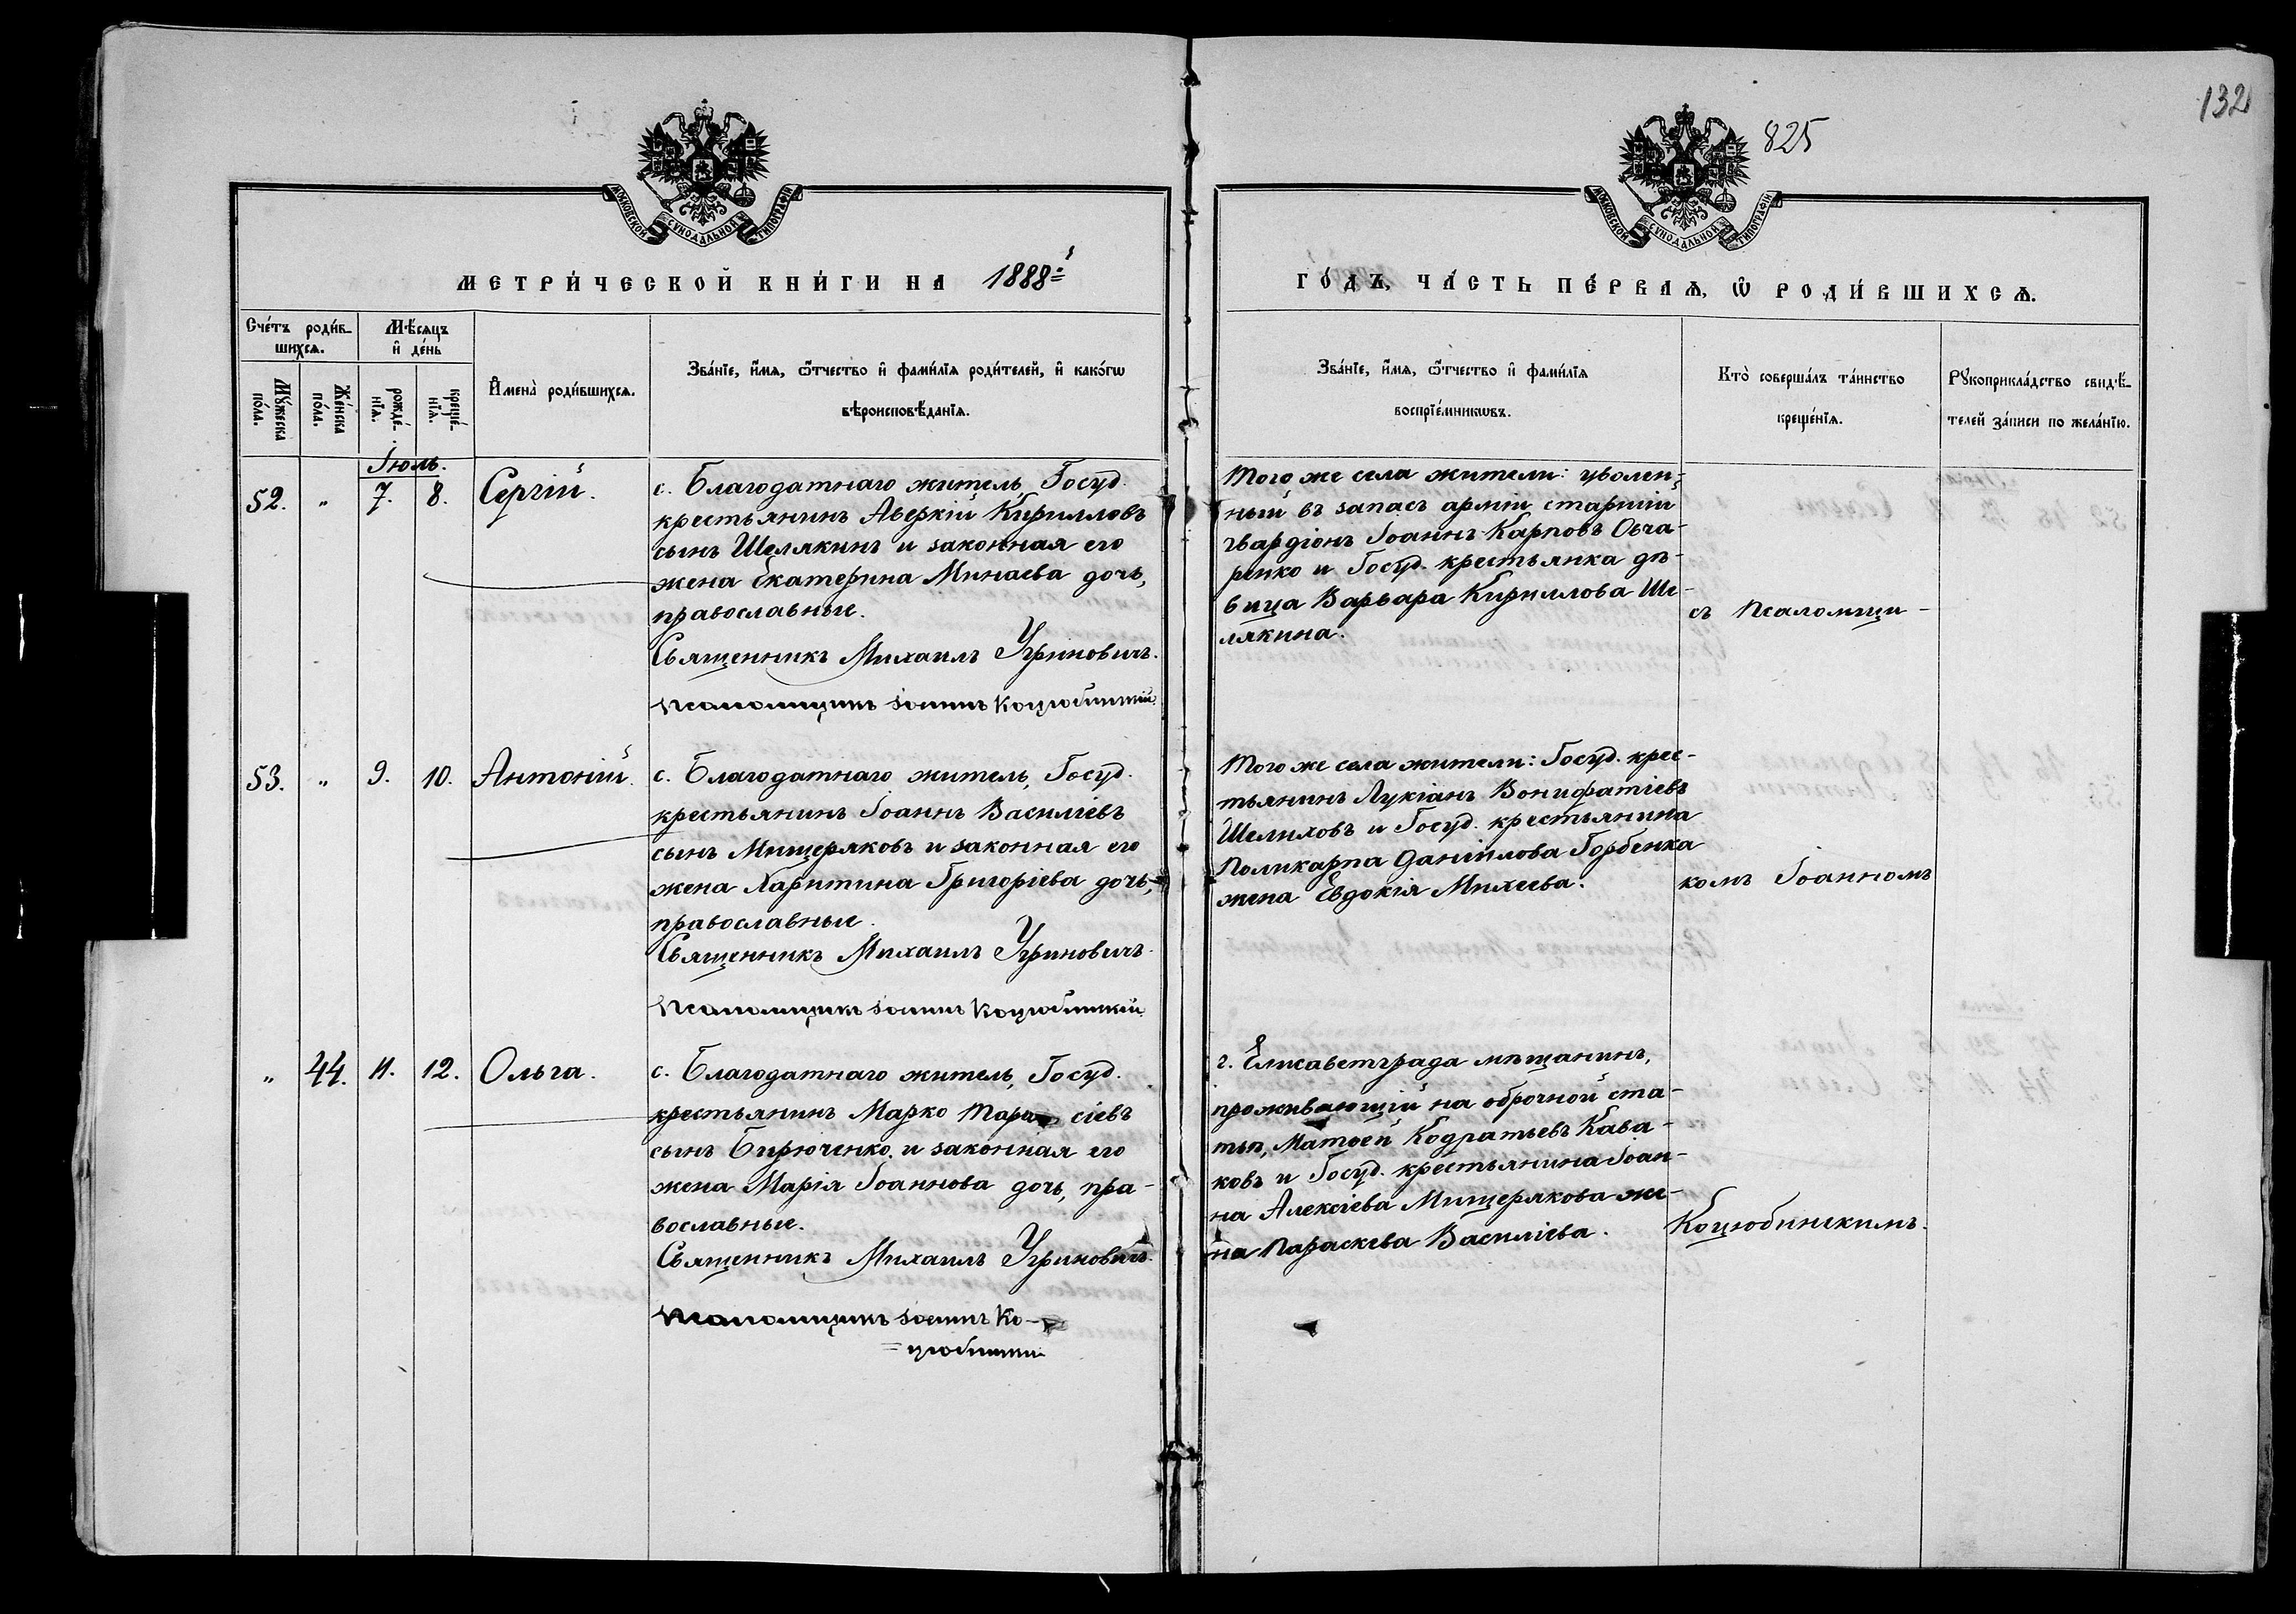 132
825
МОСКОВСКОЙ СѴНОДАЛЬНОЙ ТИПОГРАФІИ
МОСКОВСКОЙ СѴНОДАЛЬНОЙ ТИПОГРАФІИ
МЕТРИ́ЧЕСКОЙ КНИ́ГИ НА 1888-й
ГО́ДЪ, ЧА́СТЬ ПЕ́РВАѦ, Ѡ РОДИ́ВШИХСѦ.
Сче́тъ роди́в-
шихсѧ.
Мѣ́сѧцъ
и де́нь
Мꙋ́жеска
по́ла.
Же́нска
по́ла.
рожде́-
нїѧ.
креще́-
нїѧ.
Имена̀ роди́вшихсѧ.
Зва́нїе, и́мѧ, ѻ́тчество и фами́лїѧ роди́телей, и како́гѡ
вѣроисповѣ́данїѧ.
Зва́нїе, и́мѧ, ѻ́тчество и фами́лїѧ
воспрїе́мникѡвъ.
Кто̀ соверша́лъ та́инство
креще́нїѧ.
Рꙋкоприкла́дство свидѣ́-
телей за́писи по жела́нїю.
Іюль.
52. " 7. 8. Сергій.
с. Благодатнаго житель, Госуд.
крестьянинъ Аверкій Кирилловъ
сынъ Шелякинъ и законная его
жена Екатерина Минаева дочь,
православные.
Священникъ Михаилъ Угриновичъ.
Псаломщикъ Іоаннъ Коцюбинскій.
Того же села жители: уволен-
ный въ запасъ арміи старшій
гвардіонъ Іоаннъ Карповъ Овча-
ренко и Госуд. крестьянка дѣ-
вица Варвара Кириллова Ше-
лякина.
съ Псаломщи-
53. " 9. 10. Антоній.
с. Благодатнаго житель, Госуд.
крестьянинъ Іоаннъ Василіевъ
сынъ Мищеряковъ и законная его
жена Харитина Григоріева дочь,
православные.
Священникъ Михаилъ Угриновичъ.
Псаломщикъ Іоаннъ Коцюбинскій.
Того же села жители: Госуд. крес-
тьянинъ Лукіанъ Вонифатіевъ
Шелиховъ и Госуд. крестьянина
Поликарпа Даніилова Горбенка
жена Евдокія Михеева.
комъ Іоанномъ
" 44. 11. 12. Ольга.
с. Благодатнаго житель, Госуд.
крестьянинъ Марко Тара сіевъ
сынъ Бирюченко и законная его
жена Марія Іоаннова дочь, пра-
вославные.
Священникъ Михаилъ Угриновичъ.
Псаломщикъ Іоаннъ Ко-
=цюбинскій
г. Елисаветграда мѣщанинъ,
проживающій на оброчной ста-
тьѣ, Матѳей Кодратьевъ Кава-
ковъ и Госуд. крестьянина Іоан-
на Алексіева Мищерякова же-
на Параскева Василіева.
Коцюбинскимъ.